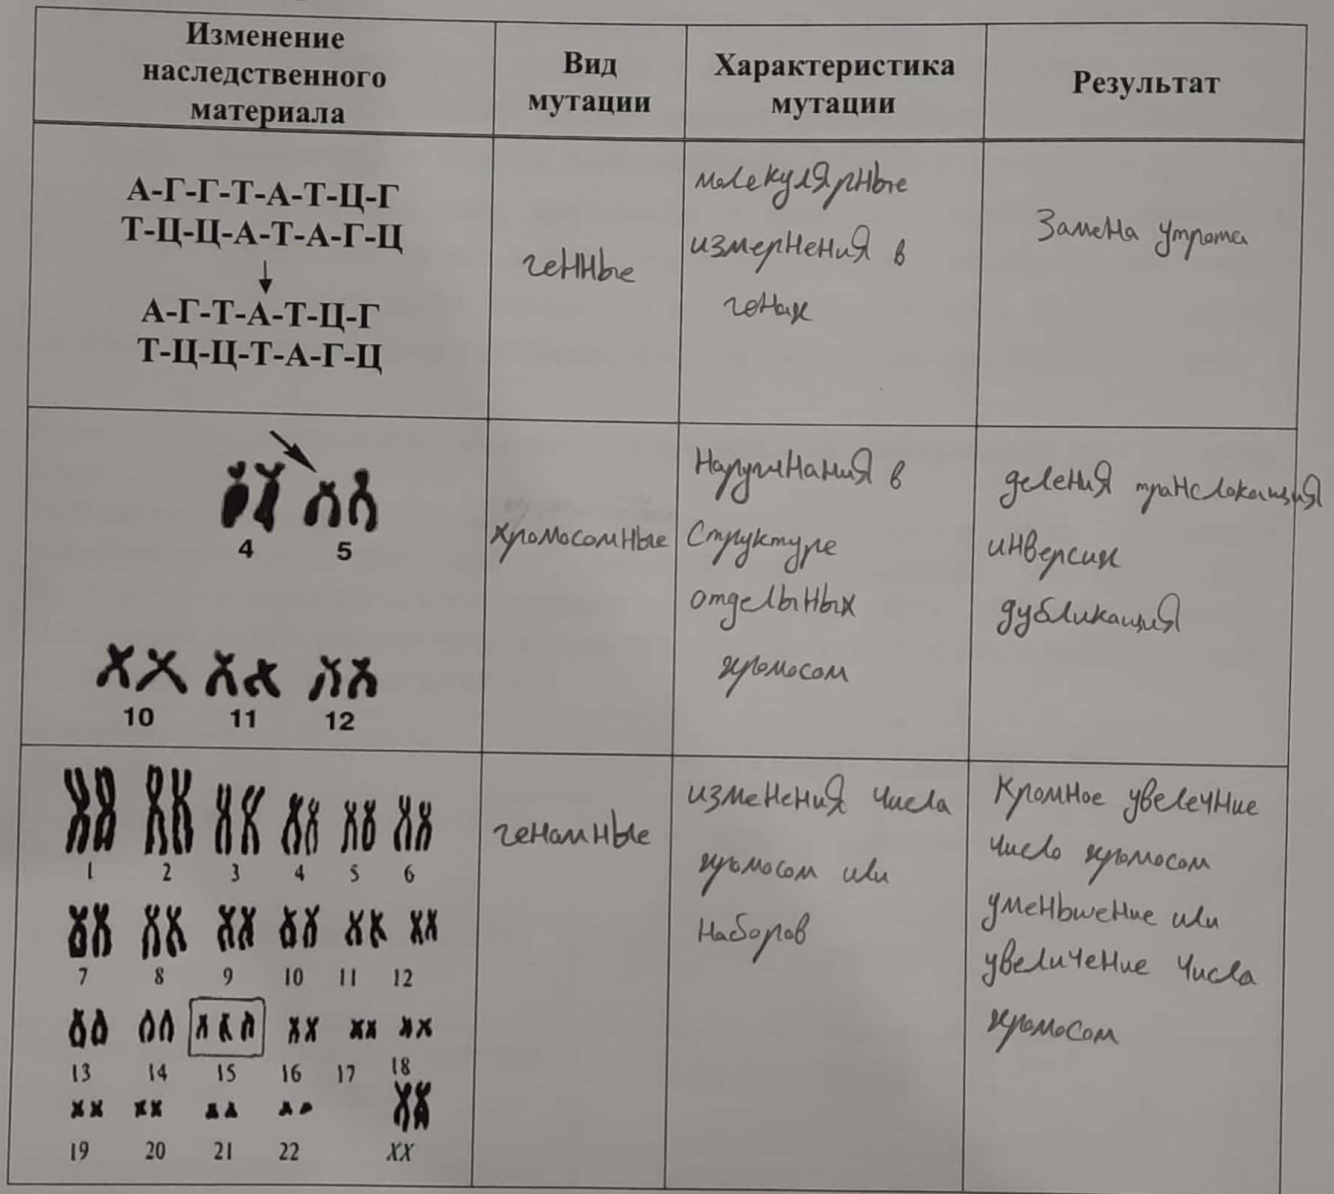 Изменение
наследственного
материала
Вид
мутации
Характеристика
мутации
Результат
А-Г-Г-Т-А-Т-Ц-Г
Т-Ц-Ц-А-Т-А-Г-Ц
А-Г-Т-А-Т-Ц-Г
Т-Ц-Ц-Т-А-Г-Ц
генные
молекулярные
измернения в
генах
Замена утрата
4 5
10 11 12
хромосомные
в
Структуре
отделыных
хромосом
деления транслокация
инверсия
дубликация
1 2 3 4 5 6
7 8 9 10 11 12
13 14 15 16 17 18
19 20 21 22 XX
геномные
изменения числа
хромосом или
наборов
Кромное увелечние
число хромосом
уменьшение или
увеличение числа
хромосом